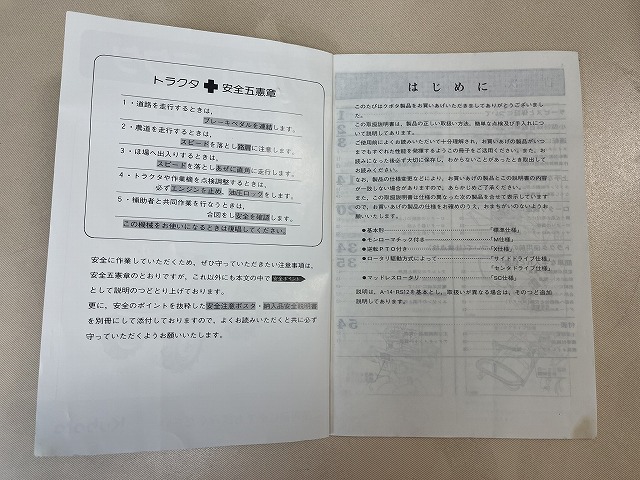 トラクタ✚安全五憲章
1・道路を走行するときは、
ブレーキペダルを連結します。
2・農道を走行するときは、
スピードを落とし路肩に注意します。
3・ほ場へ出入りするときは、
スピードを落としあぜに直角に走行します。
4・トラクタや作業機を点検調整するときは、
必ずエンジンを止め、油圧ロックをします。
5・補助者と共同作業を行なうときは、
合図をし安全を確認します。
この機械をお使いになるときは復唱してください。
安全に作業していただくため、ぜひ守っていただきたい注意事項は、
安全五憲章のとおりですが、これ以外にも本文の中で 安全ポイント
として説明のつどとり上げております。
更に、安全のポイントを抜粋した安全注意ポスタ・納入品安全説明書
を別冊にして添付しておりますので、よくお読みいただくと共に必ず
守っていただくようお願いいたします。
はじめに
このたびはクボタ製品をお買いあげいただきましてありがとうございまし
た。
この取扱説明書は、製品の正しい取扱い方法、簡単な点検及び手入れについ
て説明してあります。
ご使用前によくお読みいただいて十分理解され、お買いあげの製品がいつ
までもすぐれた性能を発揮するようこの冊子をご活用ください。また、お
読みになった後必ず大切に保存し、わからないことがあったとき取出して
お読みください。
なお、製品の仕様変更などにより、お買いあげの製品とこの説明書の内容
が一致しない場合がありますので、あらかじめご了承ください。
また、この取扱説明書は仕様の異なった次の製品を合せて表示しています
ので、お買いあげの製品の仕様をお確めのうえ、おまちがいのないようお
願いいたします。
●基本形………「標準仕様」
●モンローマチック付き………「M仕様」
●逆転PTO付き………「X仕様」
●ロータリ駆動方式によって………「サイドドライブ仕様」
「センタドライブ仕様」
●マッドレスロータリ………「SD仕様」
説明は、A-14・RS12を基本とし、取扱いが異なる場合は、そのつど追加
説明してあります。